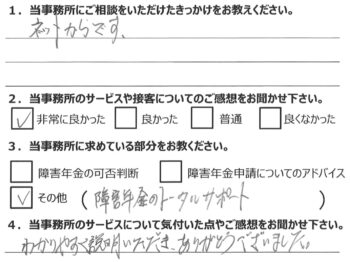 1．当事務所にご相談をいただけたきっかけをお教えください。
ネットからです、
2．当事務所のサービスや接客についてのご感想をお聞かせ下さい。
☑ 非常に良かった □ 良かった □ 普通 □ 良くなかった
3．当事務所に求めている部分をお教えください。
□ 障害年金の可否判断 □ 障害年金申請についてのアドバイス
☑ その他 （ 障害年金のトータルサポート ）
4．当事務所のサービスについて気付いた点やご感想をお聞かせ下さい。
わかりやすく説明いただき、ありがとうございました。